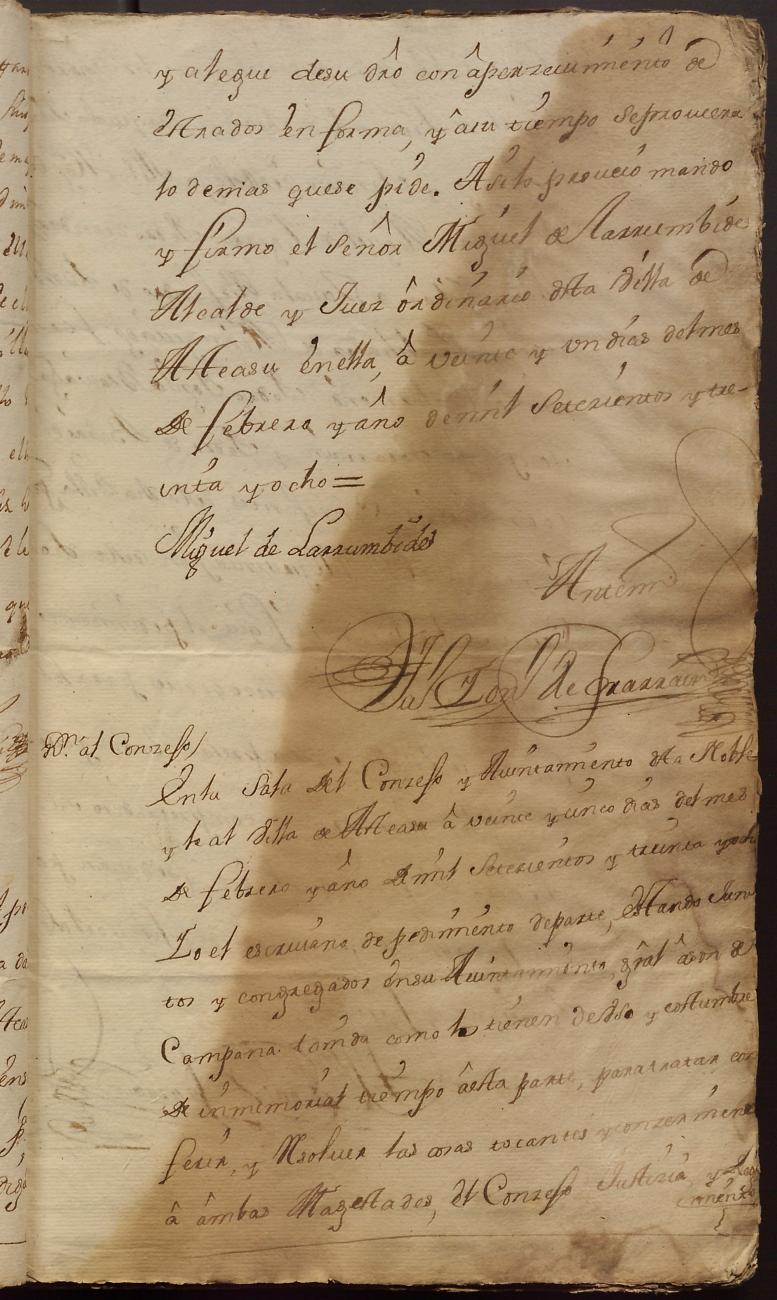 y alegue desu dro con aperzeuimiento de
estrados en forma, y asu tiempo seprouerra
lo demas quese pide. Asilo proueió mando
y firmo el Señor Miguel de Larrumbide
Alcalde y Juez ordinario dsta Villa de
Atteasu en ella, â veinte y vn dias delmes
de febrero y año demil Setezientos y tre-
inta y ocho =
Miguel de Larrumbides
Antemi
de Yrarrain
Nn. al Conzejo /
En la Sala del Conzejo y Auintamiento dsta Noble
y leal Villa de Atteasu â veinte y zinco dias delmes
de febrero y año de mil Setezientos y treinta y ocho
Yo el escriuano de pedimiento de parte, estando Jun
tos y congregados en su Auintamiento, gral â son de
Campana tañida como lo tienen de Vso y costumbre
de inmemorial tiempo â esta parte, para tratar con
ferir, y Resoluer las cosas tocantes y conzerniente
â ambas Magestades, el Conzejo Justizia, y Regi
miento